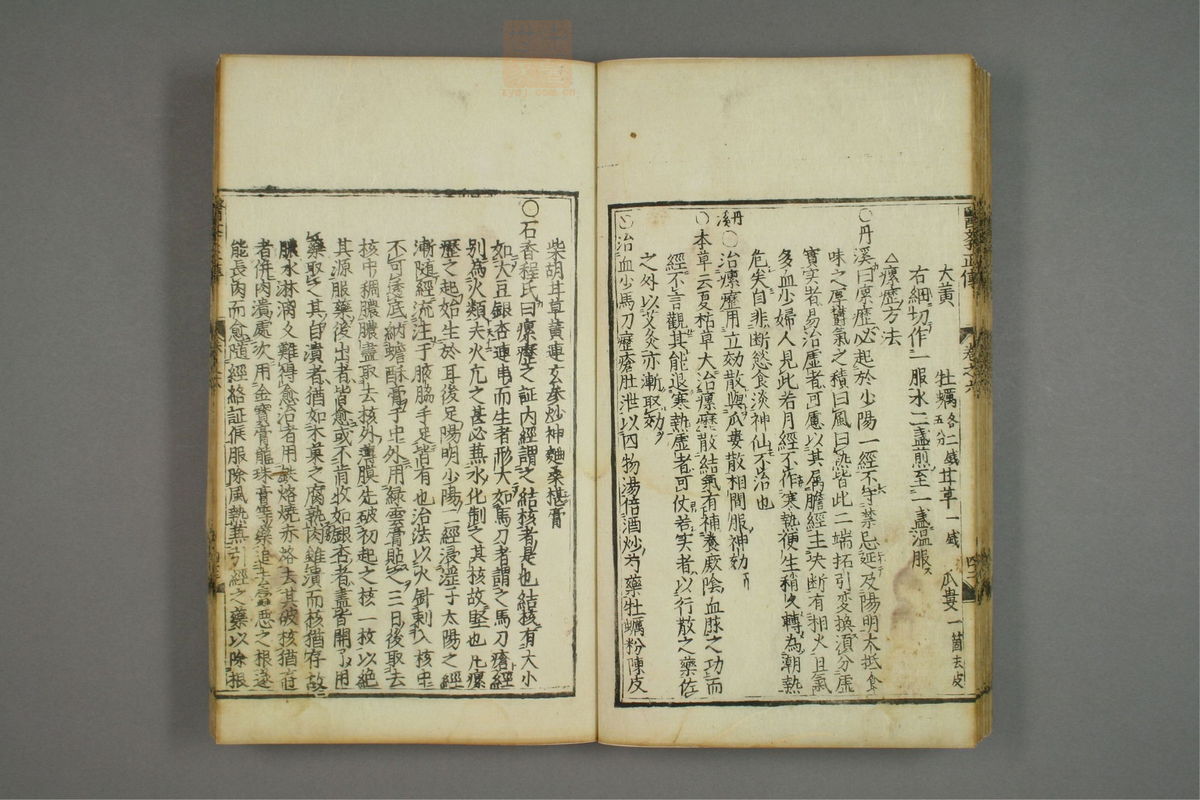 大黄　牡蠣各五分　二戔　甘草一戔　瓜蔞一箇去皮
右細切作一服水二盞煎至一盞温服
△瘰癧方法
〇丹溪曰瘰癧必起於少陽一経不守禁忌延及陽明木抵食
味之厚欝氣之積曰風曰熱皆此二端拓引変換須分虚
實實者易治虚者可慮以其属膽経主決断有相火且氣
多血少婦人見此若月経不作寒熱便生稍久轉為潮熱
危矣自非断慾食淡神仙不治也
丹溪〇治瘰癧用立効散與瓜蔞散相間服神効
〇本草云夏枯草大治瘰癧散結氣有補養厥陰血脉之功而
経不言觀其能退寒熱虚者可仗若实者以行散之藥佐
之外以艾灸亦漸取効
〇治血少馬刀癧瘡肚泄以四物湯倍酒炒芍藥牡蠣粉陳皮
柴胡甘草黄連玄参炒神麯桑椹膏
〇石香程氏曰瘰癧之証内經謂之結核者是也結核有大小
如大豆銀杏連串而生者形大如馬刀者謂之馬刀瘡経
别為火類夫火亢之甚必兼水化制之其核故堅也凡瘰
癧之起始生於耳後足陽明少陽二經浸淫于太陽之経
漸随經流注于腋脇手足皆有也治法以火針刺入核中
不可透底納蟾酥膏于中外用緑雲膏貼之三日後取去
核中稠膿膿盡取去核外薄膜先破初起之核一枚以絶
其源服藥後出者皆愈或不肯收如銀杏者盡皆開了用
藥取之其自潰者猶如木菓之腐熟肉雖潰而核猶存故
膿水淋漓久難得愈治者用鉄烙燒赤烙去其破核猶
者併肉潰處次用金寳膏龍珠膏等藥追去惡之根遂
能長肉而愈随經絡証候服除風熱兼引經之藥以除根